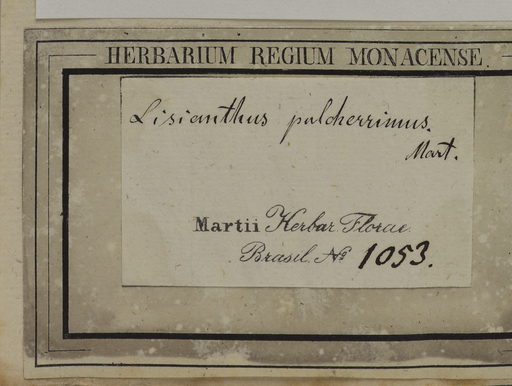 HERBARIUM REGIUM MONACENSE.
Lisianthus pulcherrimus.
Mart.
Martii Herbar. Florae
Brasil. No 1053.